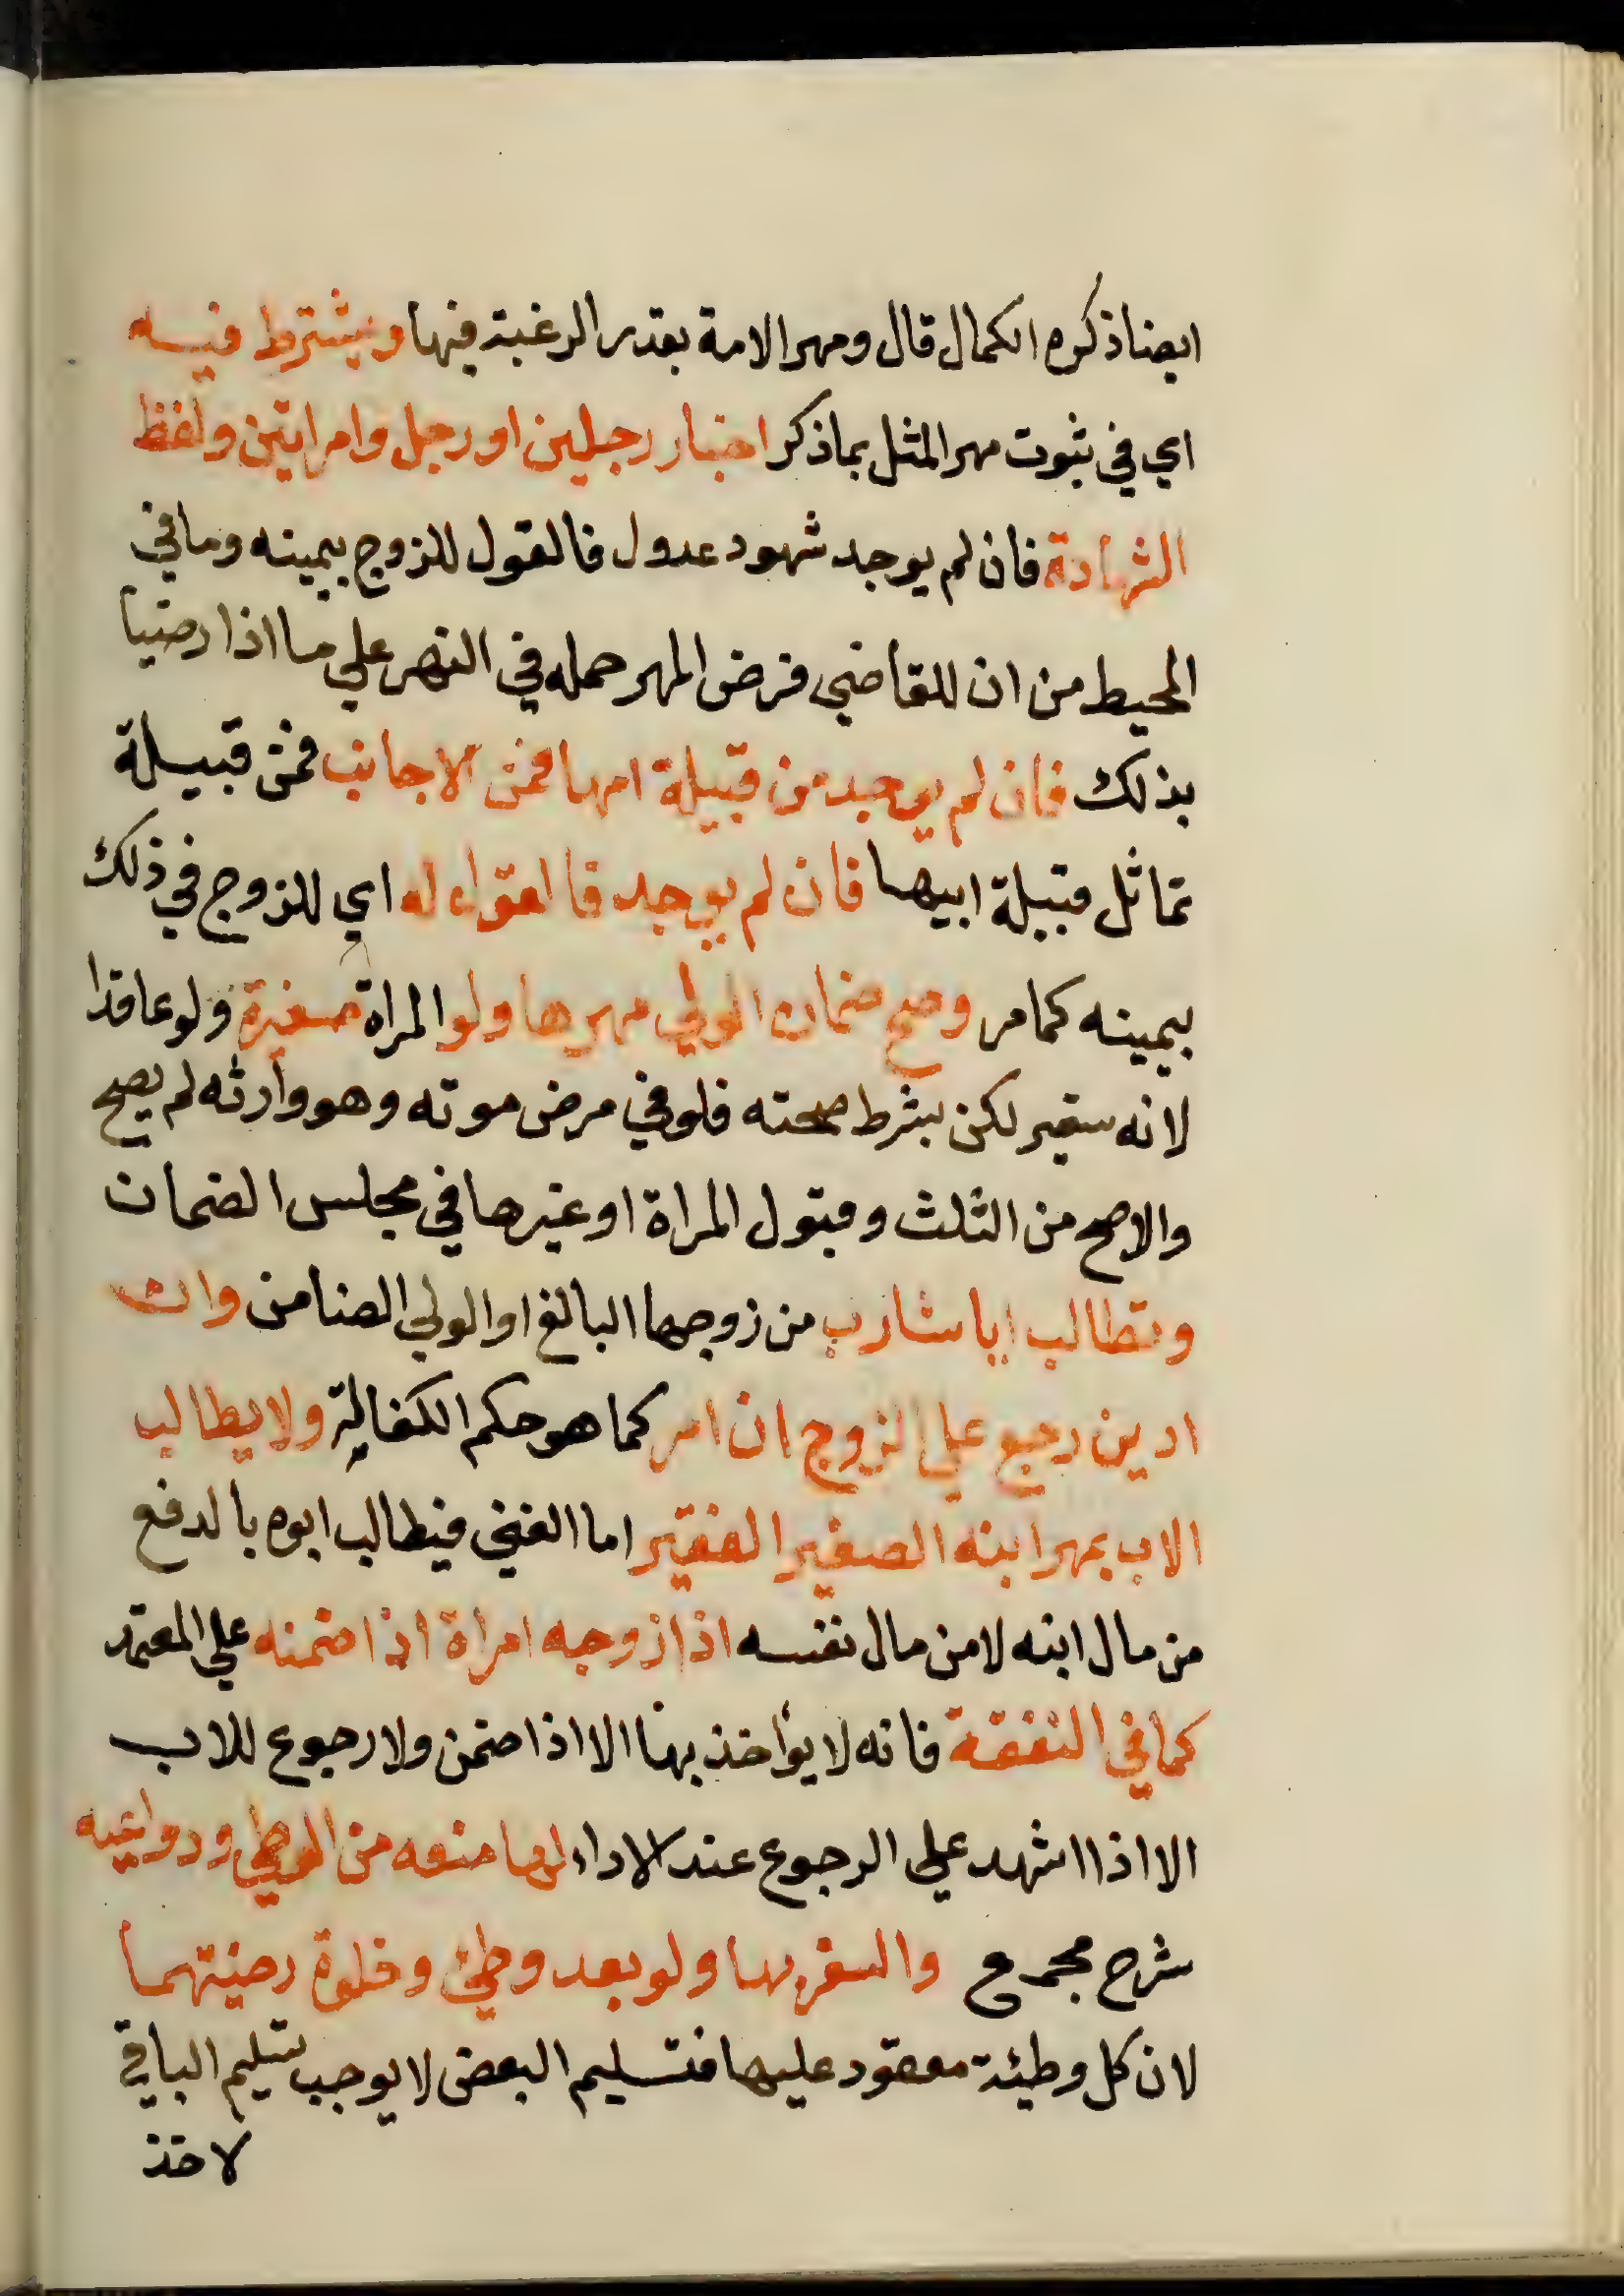 ايضا ذكره الكمال قال ومهر الامة بقدر الرغبة فيها ويشترط فيه
اي في ثبوت مهر المثل بما ذكر اخبار رجلين او رجل وامراتين ولفظ
الشهادة فان لم يوجد شهود عدول فالقول للزوج بيمينه وما في
المحيط من ان للقاضي فرض المهر حمله في النهر علي ما اذا رضيا
بذلك فان لم يوجد من قبيلة ابيها فمن الاجانب فمن قبيلة
تماثل قبيلة ابيها فان لم يوجد فالقول له اي للزوج في ذلك
بيمينه كما مر وصح ضمان الولي مهرها ولو المراة صغيرة ولو عاقدا
لانه سفير لكن بشرط صحته فلو في مرض موته وهو وارثه لم يصح
والا صح من الثلث وقبول المراة او غيرها في مجلس الضمان
وتطالب ايا شاءت من زوجها البالغ او الولي الضامن وان
ادين رجع علي الزوج ان امر كما هو حكم الكفالة ولا يطالب
الاب بمهر ابنه الصغير الفقير اما الغني فيطالب ابوه بالدفع
من مال ابنه لا من مال نفسه اذا زوجه امراة اذا ضمنه علي المعتمد
كما في النفقة فانه لا يؤاخذ بها الا اذا ضمن ولا رجوع للاب
الا اذا اشهد علي الرجوع عند الاداء لها منعه من الوطي ودواعيه
شرح مجمع والسفر بها ولو بعد وطئ وخلوة رضيتهما
لان كل وطئة معقود عليها فتسليم البعض لا يوجب تسليم الباقي
لاخذ